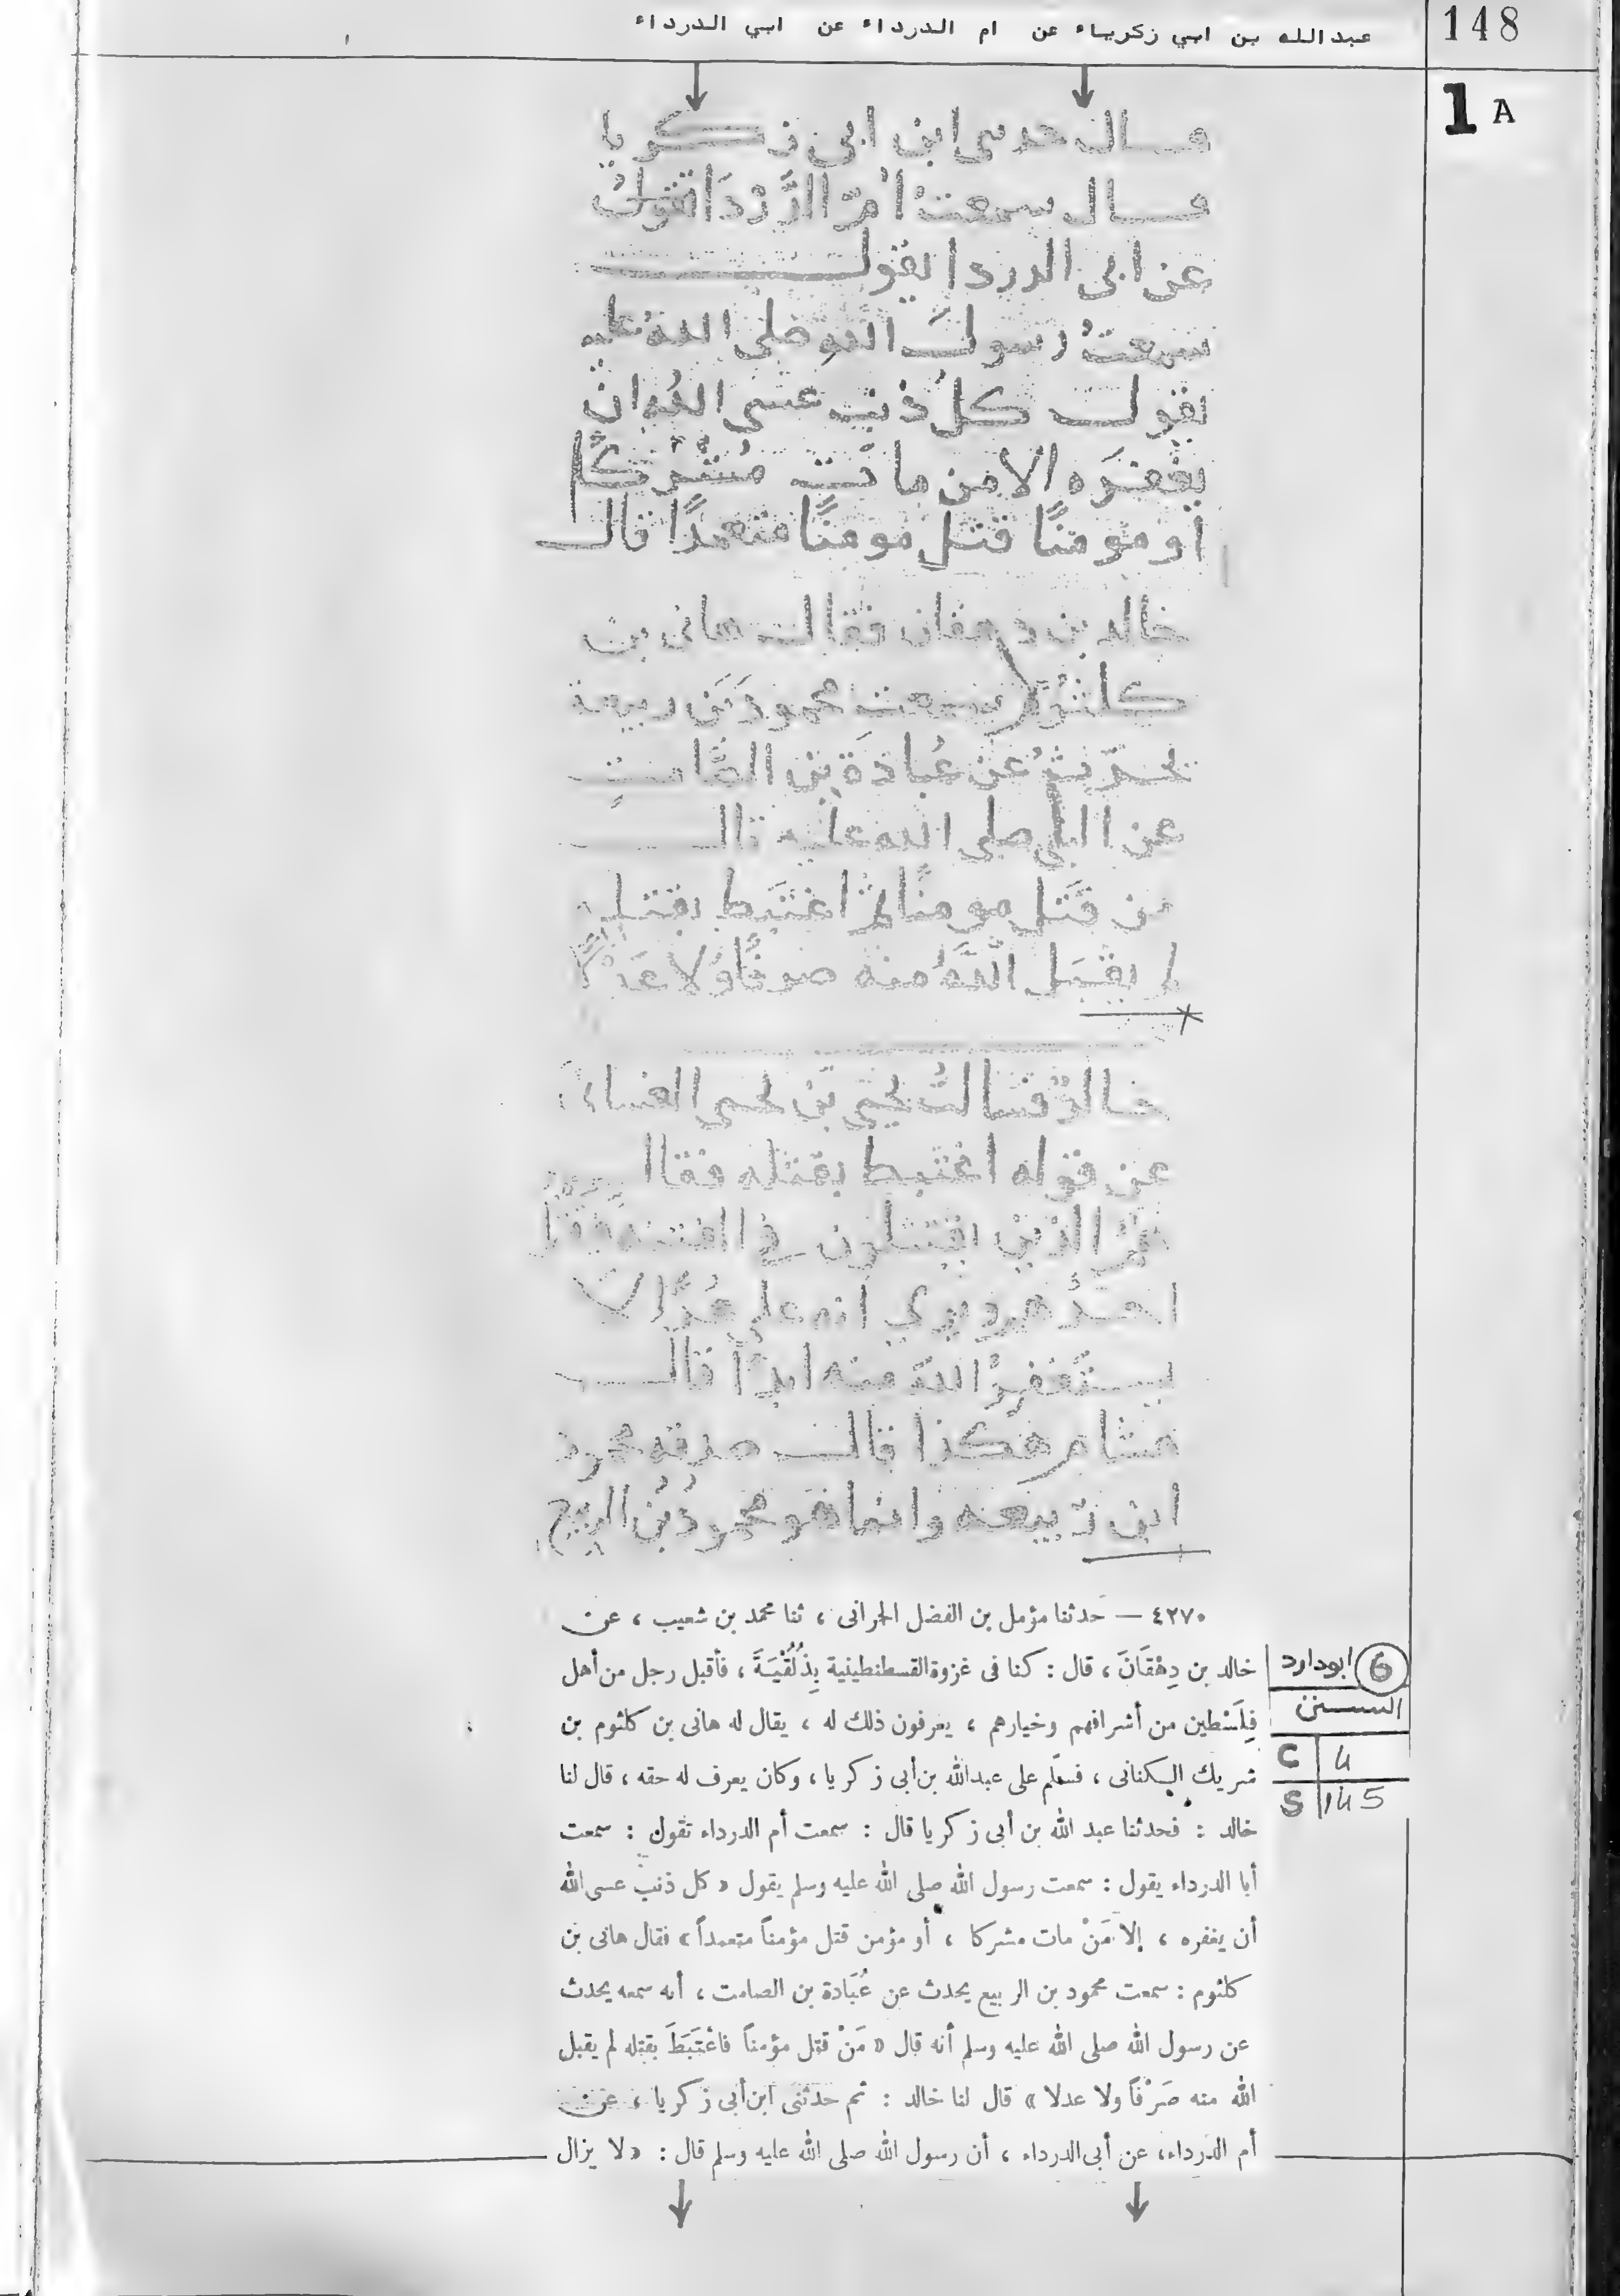 148
عبدالله بن ابي زكرياء عن ام الدرداء عن ابي الدرداء
1 A
قال حدثنى ابن ابى زكريا
قال سمعت أم الدَّرْدَا تقول
عن ابى الدردا يقول
سمعتُ رسول الله صلى الله عليه
يقول كل ذنب عسى الله ان
يغفرَه الا من مات مُشْركًا
أو مؤمنًا قتل مومنًا متعمدًا قال
خالد بن دهقان فقال هانى بن
كلثوم سمعت محمودَ بَن ربيعة
يحدّث عن عُبادَة بن الصَّامت
عن النبى صلى الله عليه قال
من قَتَل مومنًا ثم اغتَبَط بقتله
لم يقبَل اللَّهُ منه صرفًا ولا عَدلًا
خالدٌ فسالتُ يحيى بن يحيى الغسانى
عن قوله اغتبط بقتله فقال
هم الذين يقتتلون فى الفتنه فيقتل
احدهم ويرى انه على هُدًى لا
يستغفر الله منه ابدًا قال
هشام هكذا قال صدقه محمود
ابن ربيعه وانما هو محمودُ بْن الربيع
٤٢٧٠ — حَدثنا مؤمل بن الفضل الحرانى ، ثنا محمد بن شعيب ، عن
خالد بن دِهْقَانَ ، قال : كنا فى غزوة القسطنطينية بِذُلُقْيَةَ ، فأقبل رجل من أهل
فِلَسْطين من أشرافهم وخيارهم ، يعرفون ذلك له ، يقال له هانى بن كلثوم بن
شريك الكنانى ، فسلّم على عبدالله بن أبى زكريا ، وكان يعرف له حقه ، قال لنا
خالد : فحدثنا عبد الله بن أبى زكريا قال : سمعت أم الدرداء تقول : سمعت
أبا الدرداء يقول : سمعت رسول الله صلى الله عليه وسلم يقول « كل ذنب عسى الله
أن يغفره ، إلا مَنْ مات مشركا ، أو مؤمن قتل مؤمناً متعمداً » فقال هانى بن
كلثوم : سمعت محمود بن الربيع يحدث عن عُبَادة بن الصامت ، أنه سمعه يحدث
عن رسول الله صلى الله عليه وسلم أنه قال « مَنْ قتل مؤمناً فاعْتَبَطَ بقتله لم يقبل
الله منه صَرْفاً ولا عدلا » قال لنا خالد : ثم حدثنى ابن أبى زكريا ، عن
أم الدرداء، عن أبى الدرداء ، أن رسول الله صلى الله عليه وسلم قال : « لا يزال
6 ابوداود
السنن
C 4
S 145